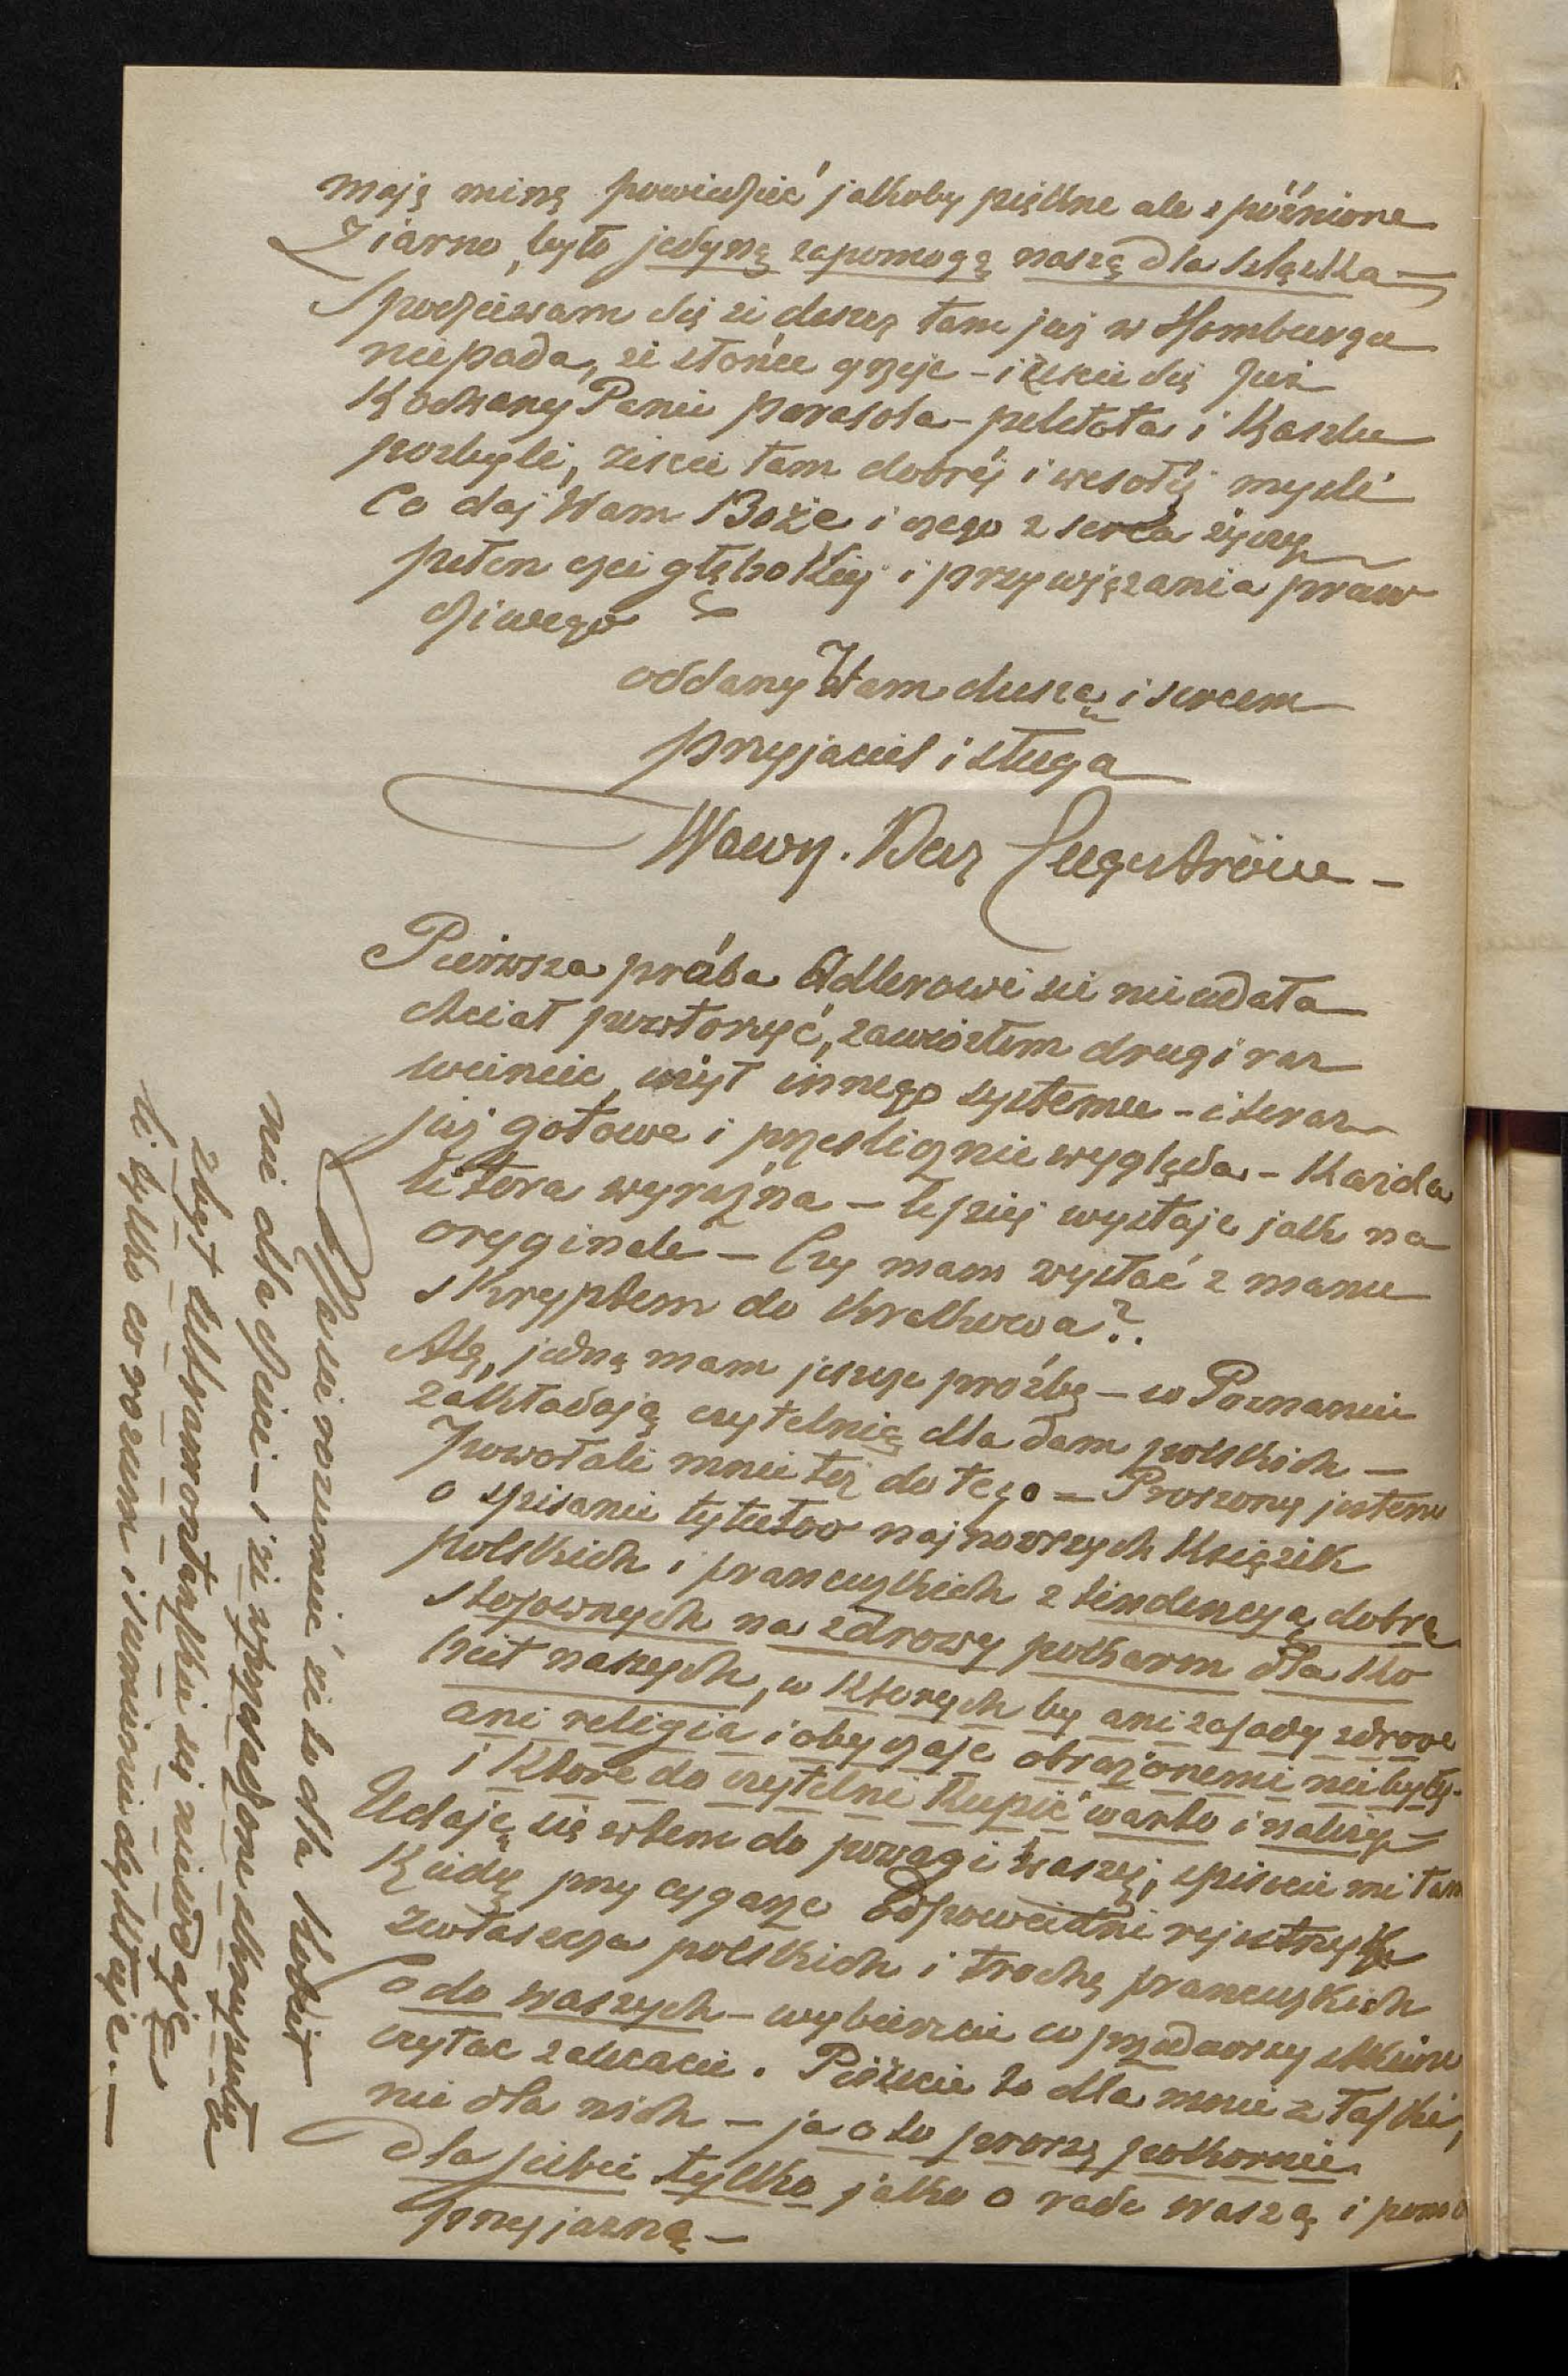 mają miną powiedzieć jakoby piękne ale spóźnione
Ziarno, było jedyną zapomogą naszą dla Szląska—
Spodziewam się że deszcz tam już w Homburgu
niepada, że słońce grzeje – i żeście się już
Kochany Panie parasola – paletota i Kaszlu
pozbyli, żeście tam dobréj i wesołéj myśli
Co daj Wam Boże i czego z serca życzy
pełen czci głębokiej i przywiązania praw
dziwego
oddany Wam duszą i sercem
przyjaciel i sługa
Wawrz. Benz. Engeström –
Pierwsza próba Adlerowi się nieudała
chciał powtórzyć, zawiozłem drugi raz
weinicie, użył innego systemu – i teraz
już gotowe i prześlicznie wygląda – Każda
litera wyraźna – lepiej wystaje jak na
oryginale – Czy mam wysłać z manu
skryptem do Krakowa?.
Ale, jedną mam jeszcze prośbę – w Poznaniu
zakładają czytelnię dla dam polskich —
powołali mnie też do tego – Proszony jestem
o spisanie tytułów najnowszych książek
polskich i francuzkich z tendencyą dobrą
stosownych na zdrowy pokarm dla ko
biet naszych, w których by ani zasady zdrowe
ani religia i obyczaje obrażonemi nie były –
i które do czytelni kupić warto i należy –
Udaję się zatem do powagi waszéj, spiszcie mi tam
kiedy przy cygarze odpowiedni rejestrzyk
zwłaszcza polskich i trochę francuzkich
Co do waszych – wybierzcie co przedewszystkiem
czytać zalecacie. Piszecie to dla mnie z łaski,
nie dla nich – ja o to proszę pokornie
dla siebie tylko jako o radę waszą i pomoc
przyjazną –
Panie rozumieć że to dla kobiet
nie dla dzieci – i że
zbyt się niewdaje
li tylko co rozum i sumienie dyktuje. —